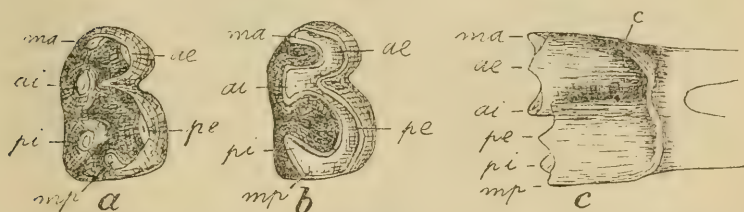 ma
ae
ai
pi
pe
mp
a
ma
ae
ai
pi
pe
mp
b
c
ma
ae
ai
pe
pi
mp
c